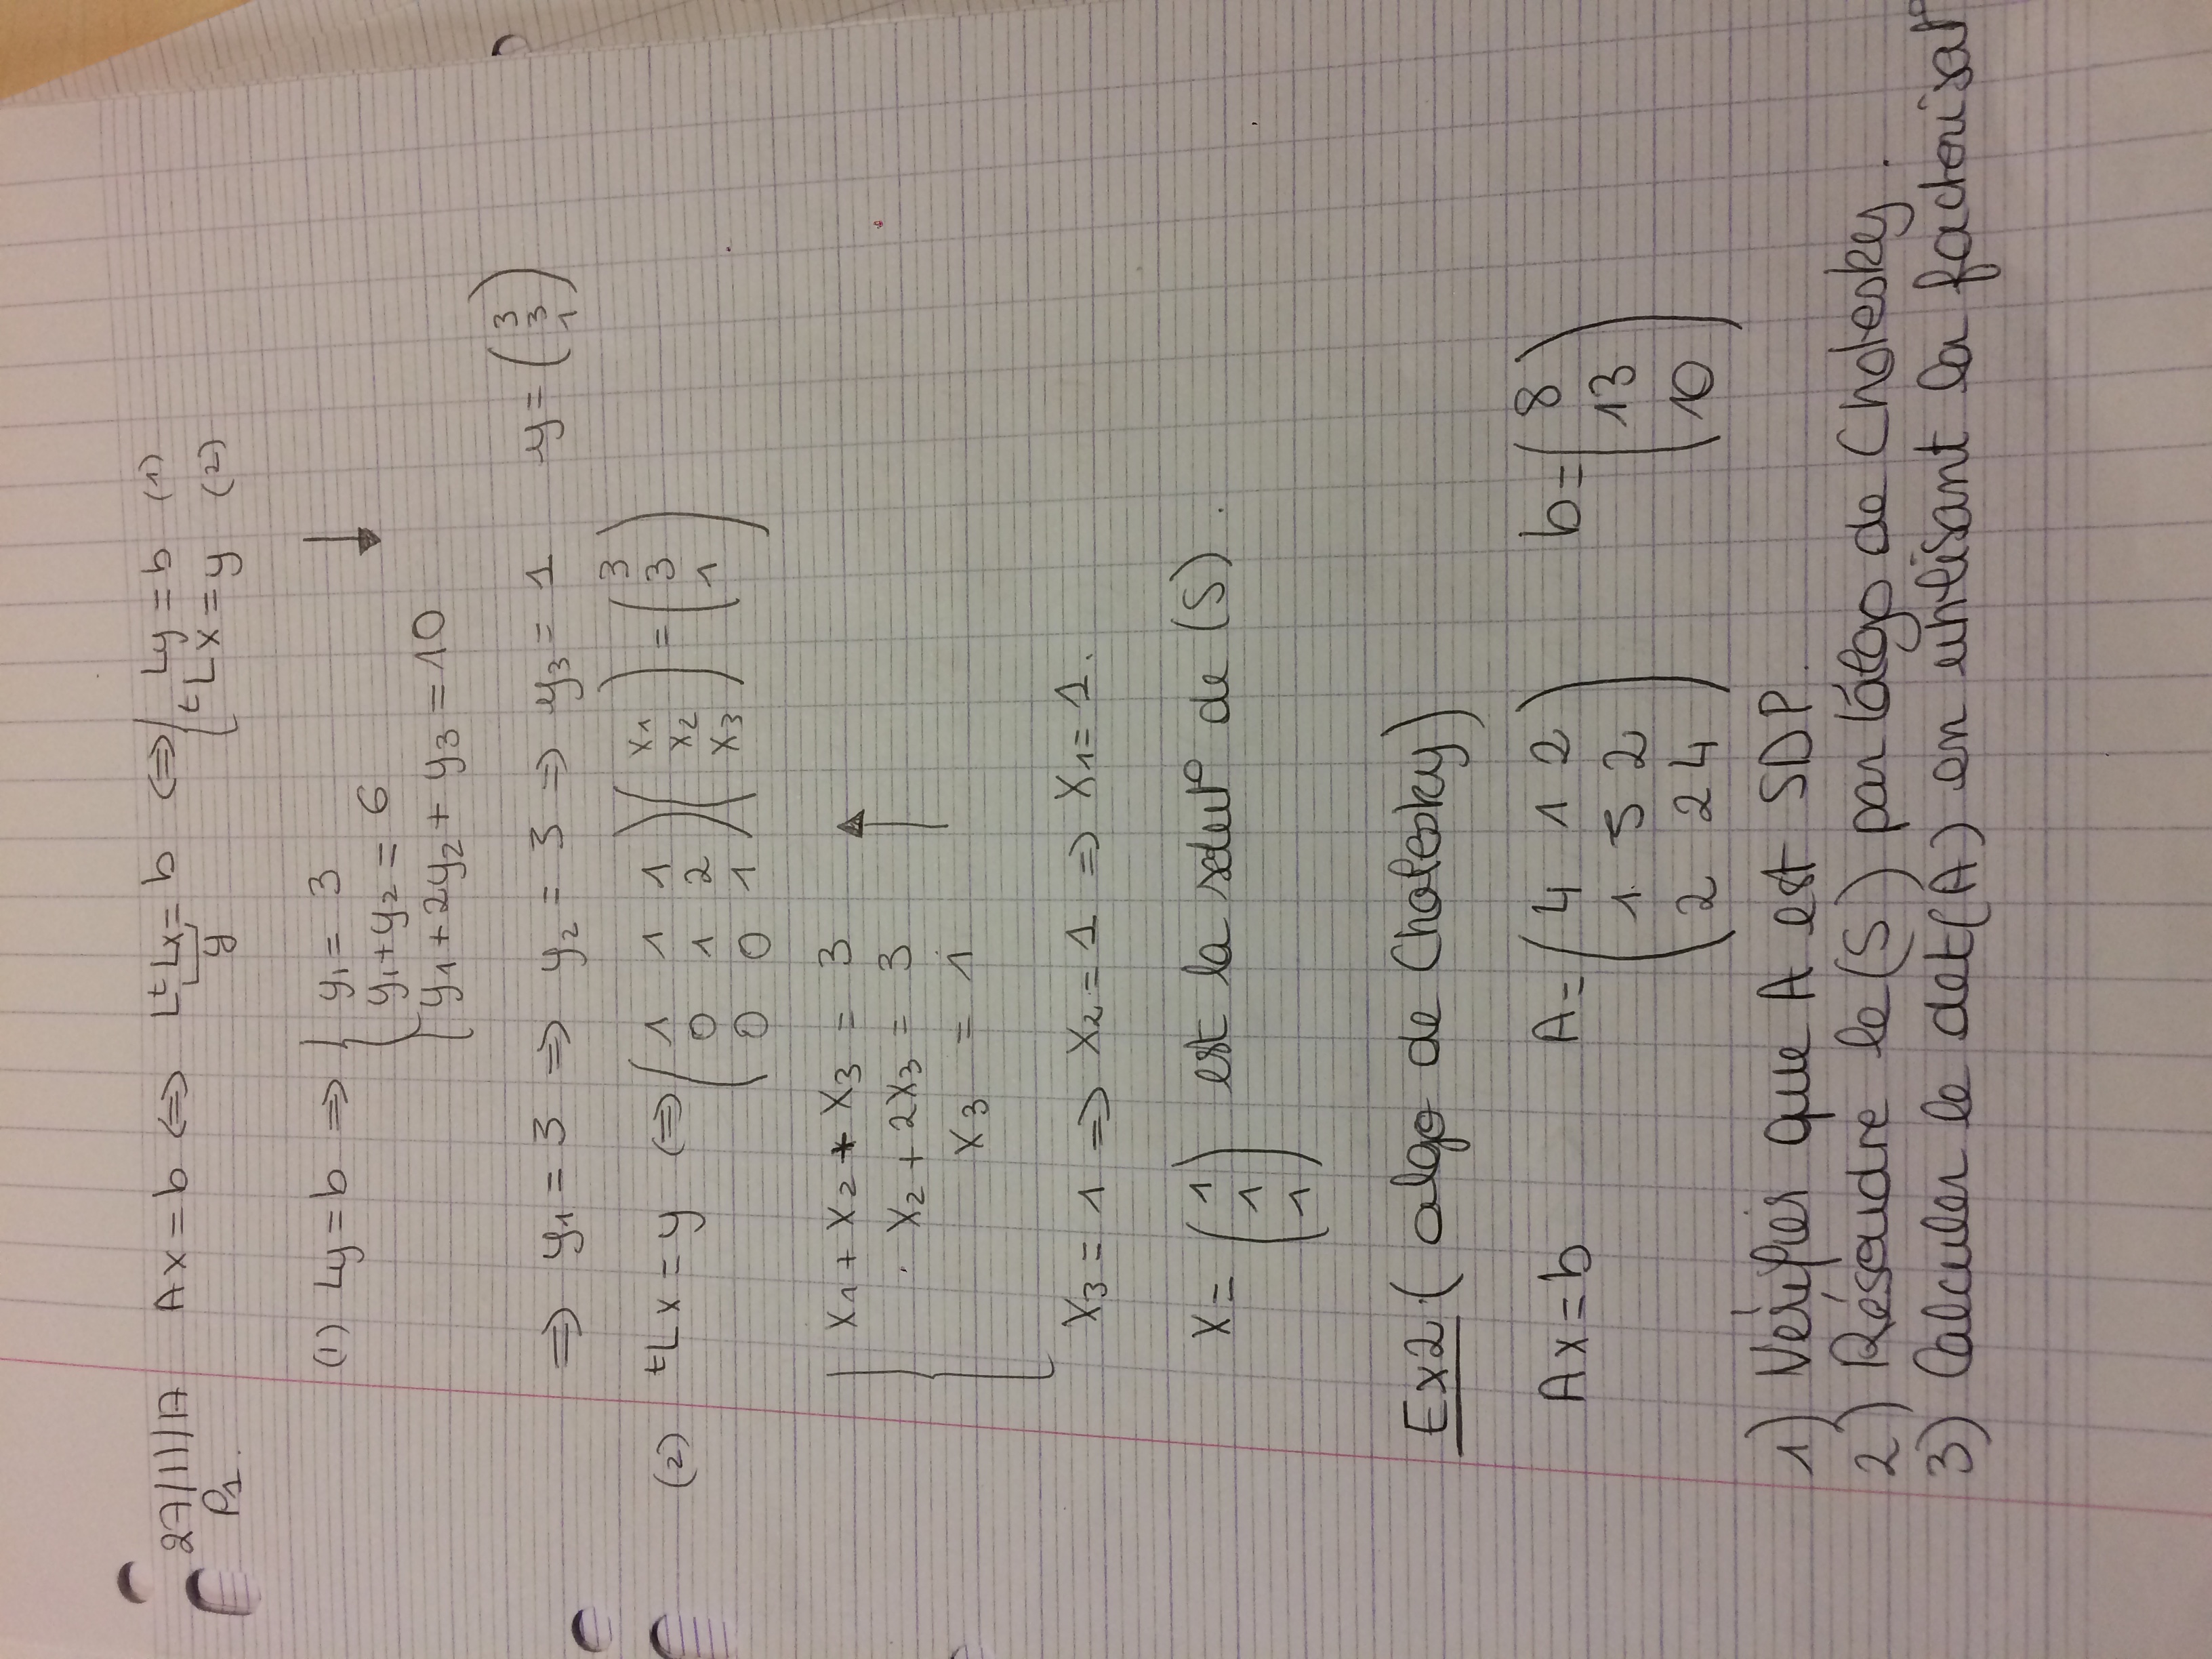 27/11/17 Ax = b ⇔ LᵗLx = b ⇔ { Ly = b (1)
P1. y ᵗLx = y (2)
(1) Ly = b ⇒ { y₁ = 3
y₁ + y₂ = 6
y₁ + 2y₂ + y₃ = 10
⇒ y₁ = 3 ⇒ y₂ = 3 ⇒ y₃ = 1 y = (3 3 1)
(2) ᵗLx = y ⇔ (1 1 1) (x₁) = (3)
(0 1 2) (x₂) (3)
(0 0 1) (x₃) (1)
x₁ + x₂ + x₃ = 3
x₂ + 2x₃ = 3
x₃ = 1
x₃ = 1 ⇒ x₂ = 1 ⇒ x₁ = 1.
x = (1 1 1) est la solut° de (S).
Ex2 (algo de Cholesky)
Ax = b A = (4 1 2) b = (8)
(1 5 2) (13)
(2 2 4) (10)
1) Vérifier que A est SDP.
2) Résoudre le (S) par l'algo de Cholesky.
3) Calculer le det(A) en utilisant la factorisat°